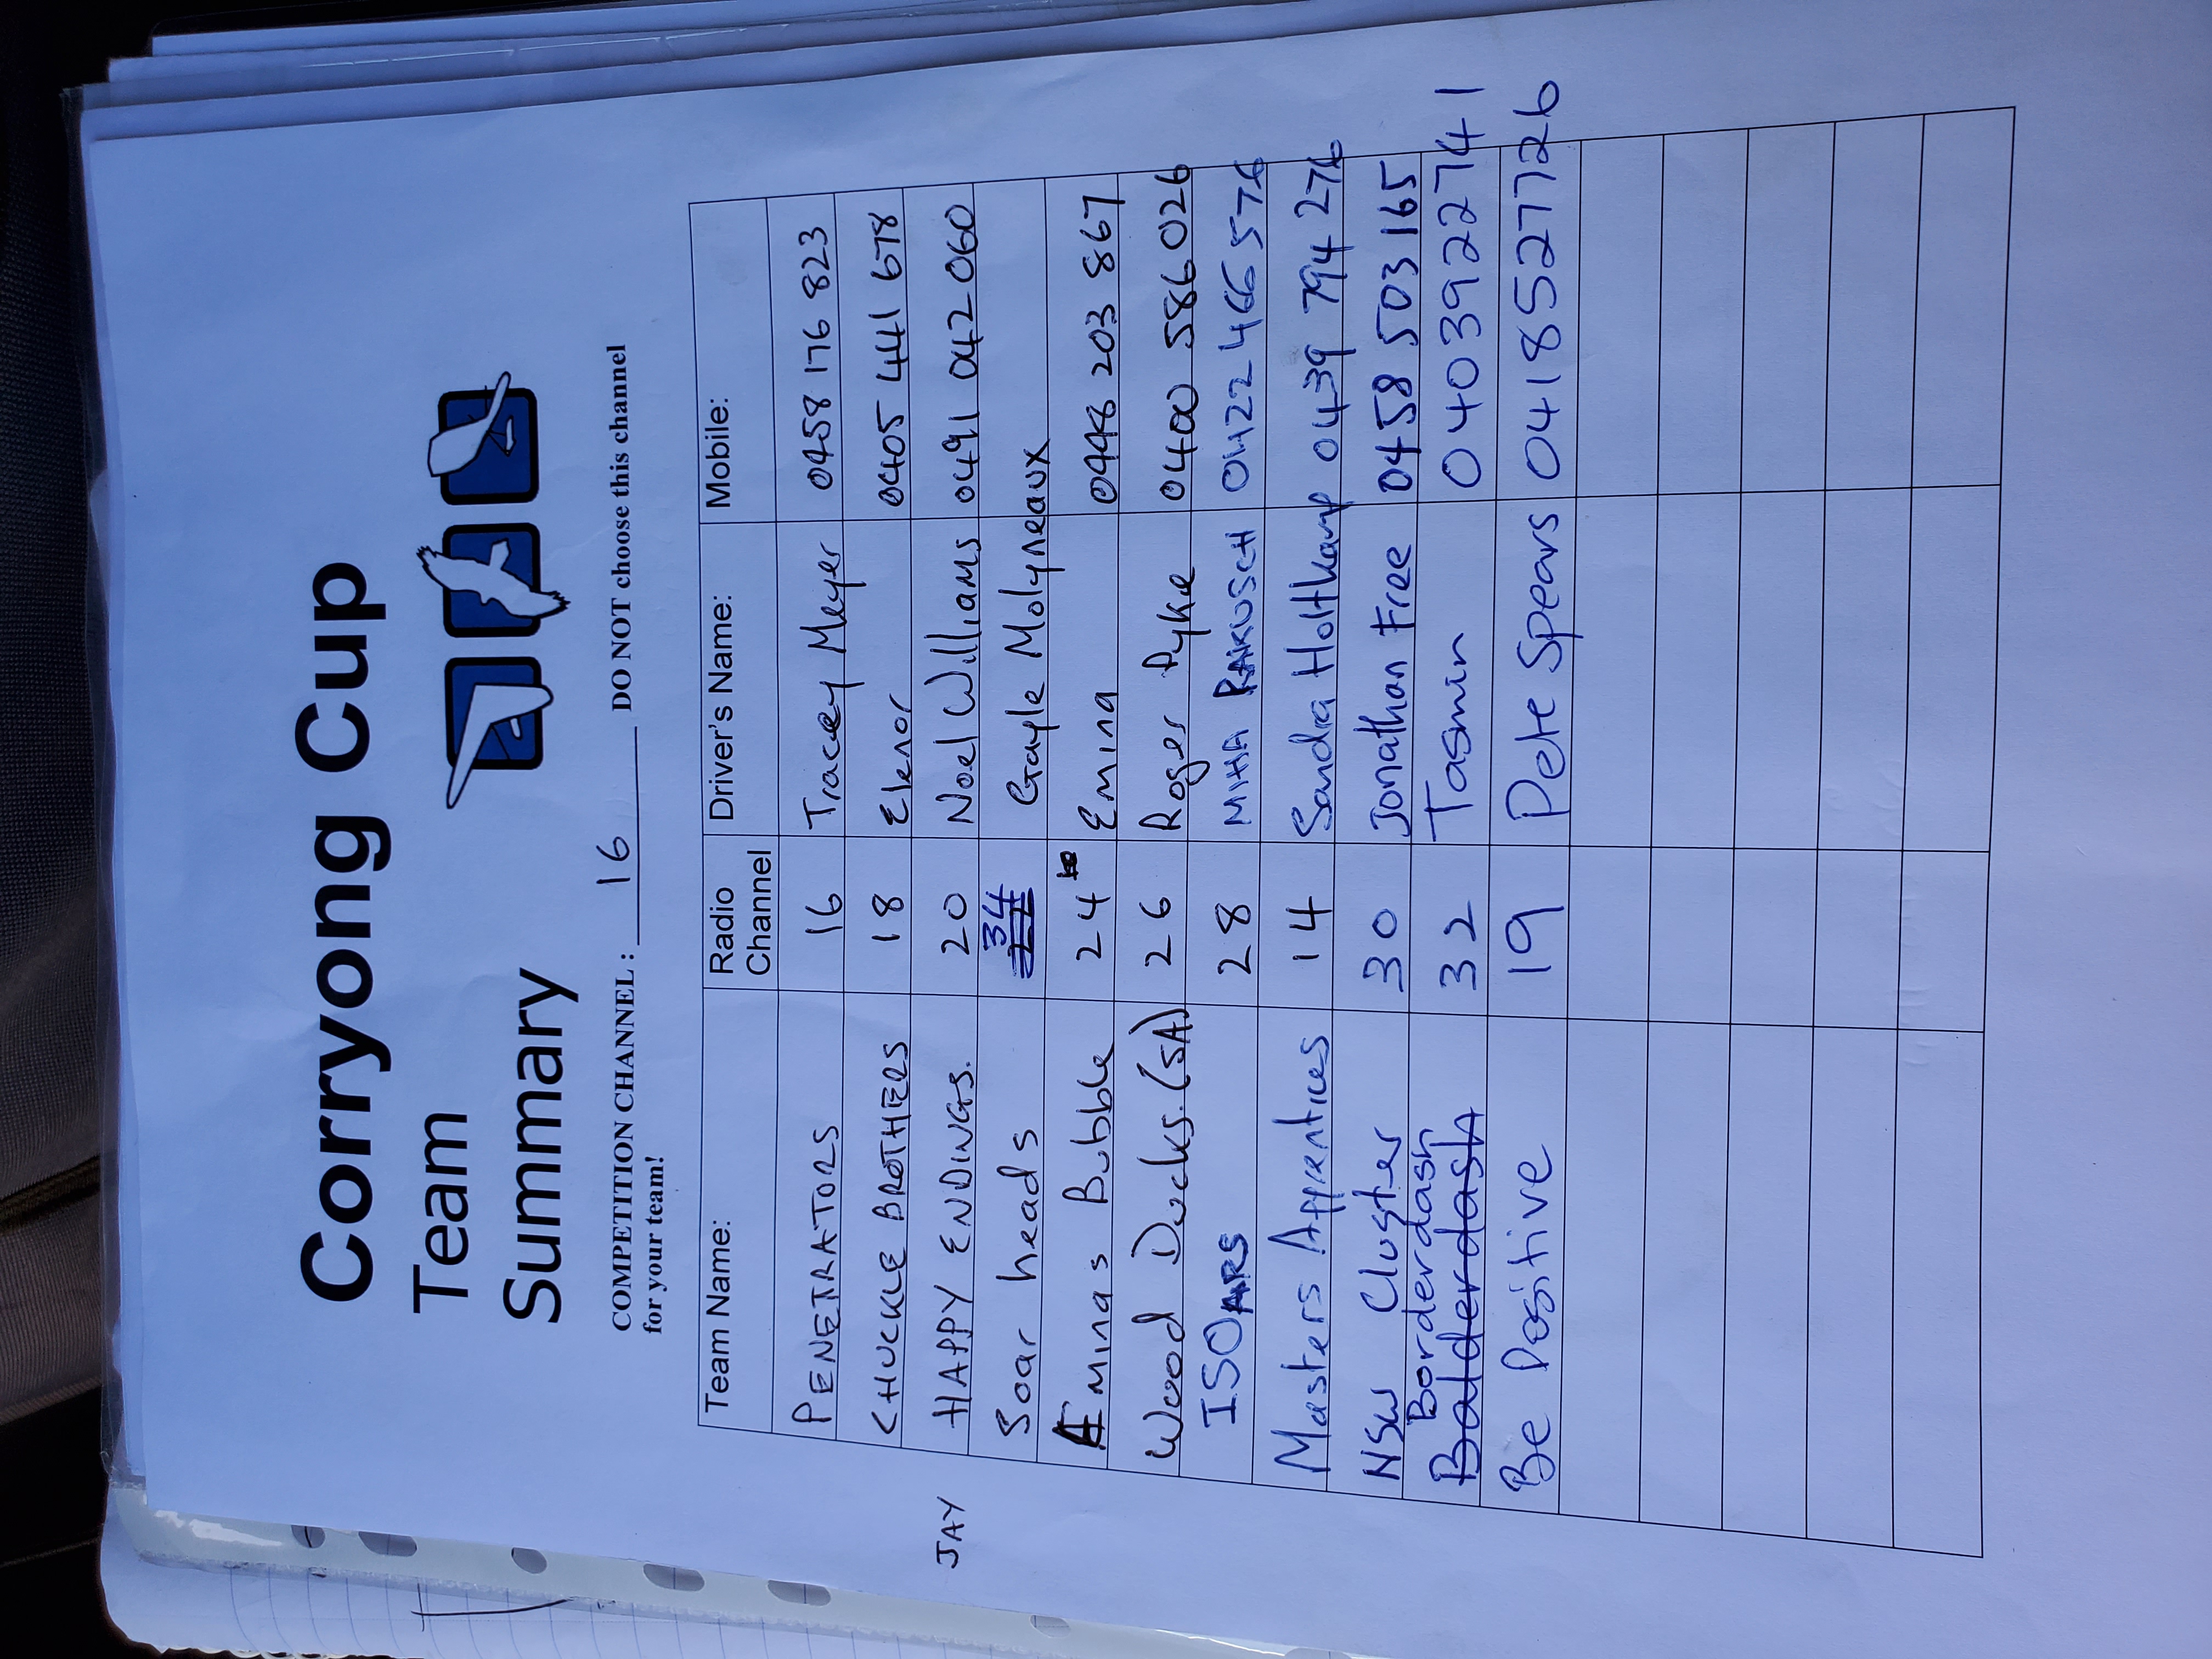 Corryong Cup
Team
Summary
COMPETITION CHANNEL : 16 DO NOT choose this channel
for your team!
Team Name: Radio Channel Driver's Name: Mobile:
PENETRATORS 16 Tracey Meyer 0458 176 823
CHUCKLE BROTHERS 18 Elenor 0405 441 678
JAY HAPPY ENDINGS. 20 Noel Williams 0491 042 060
Soar heads 34 Gayle Molyneaux
Eminas Bubble 24 Emina 0448 203 867
Wood Ducks. (SA) 26 Roger Pyke 0400 586 026
ISOARS 28 MIHA PAKUSCH 0422 466 576
Masters Apprentices 14 Sandra Holtkamp 0439 794 276
NSW Cluster 30 Jonathan Free 0458 503 165
Borderdash
Balderdash 32 Tasmin 0403922741
Be Positive 19 Pete Spears 0418527726